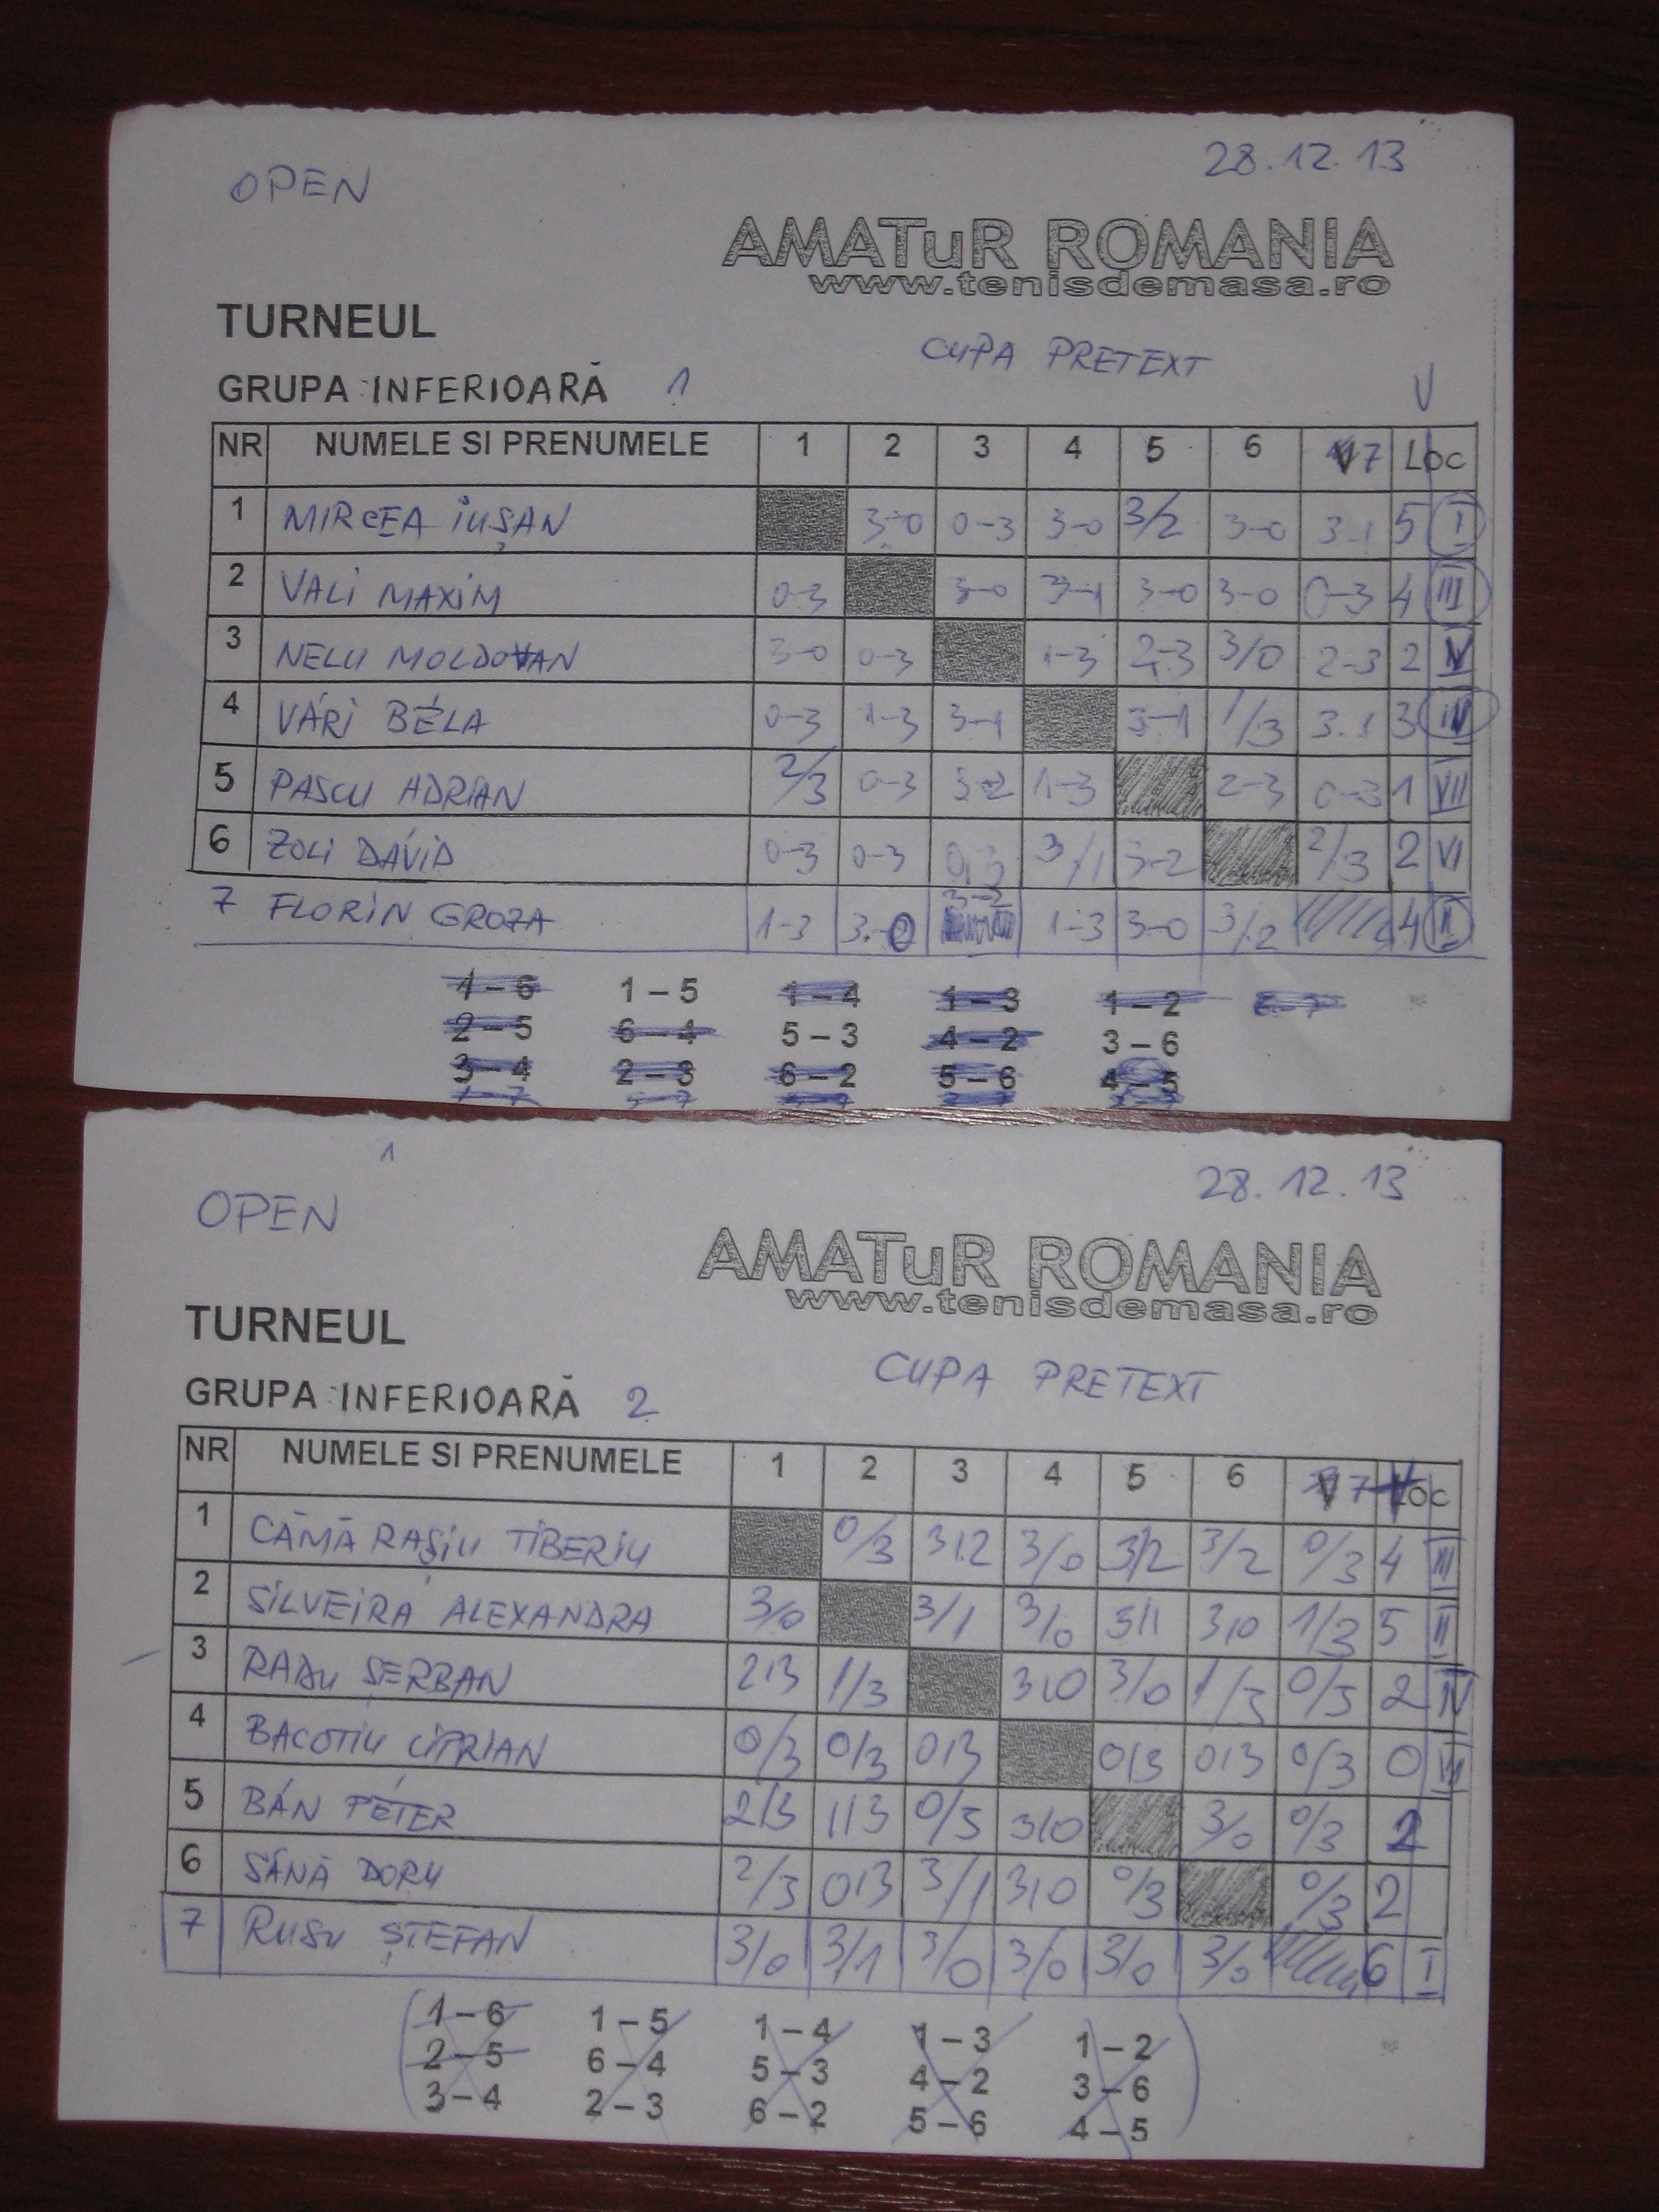 OPEN 28.12.13
AMATuR ROMANIA
www.tenisdemasa.ro
TURNEUL
CUPA PRETEXT
GRUPA INFERIOARĂ 1 V
NR NUMELE SI PRENUMELE 1 2 3 4 5 6 7 Loc
1 MIRCEA IUȘAN 3-0 0-3 3-0 3/2 3-0 3-1 5 I
2 VALI MAXIM 0-3 3-0 3-1 3-0 3-0 0-3 4 III
3 NELU MOLDOVAN 3-0 0-3 1-3 2-3 3/0 2-3 2 V
4 VÁRI BÉLA 0-3 1-3 3-1 3-1 1/3 3.1 3 IV
5 PASCU ADRIAN 2/3 0-3 3-2 1-3 2-3 0-3 1 VII
6 ZOLI DÁVID 0-3 0-3 0-3 3/1 3-2 2/3 2 VI
7 FLORIN GROZA 1-3 3-0 3-2 1-3 3-0 3/2 4 II
1 – 6 1 – 5 1 – 4 1 – 3 1 – 2 6-7
2 – 5 6 – 4 5 – 3 4 – 2 3 – 6
3 – 4 2 – 3 6 – 2 5 – 6 4 – 5
1-7 5-7
1
OPEN 28.12.13
AMATuR ROMANIA
www.tenisdemasa.ro
TURNEUL
CUPA PRETEXT
GRUPA INFERIOARĂ 2
NR NUMELE SI PRENUMELE 1 2 3 4 5 6 7 Loc
1 CĂMĂRAȘIU TIBERIU 0/3 3/2 3/0 3/2 3/2 0/3 4 III
2 SILVEIRA ALEXANDRA 3/0 3/1 3/0 3/1 3/0 1/3 5 II
3 RADU ȘERBAN 2/3 1/3 3/0 3/0 1/3 0/3 2 IV
4 BACOTIU CIPRIAN 0/3 0/3 0/3 0/3 0/3 0/3 0 VII
5 BÁN PÉTER 2/3 1/3 0/3 3/0 3/0 0/3 2
6 SÂNĂ DORU 2/3 0/3 3/1 3/0 0/3 0/3 2
7 RUSU ȘTEFAN 3/0 3/1 3/0 3/0 3/0 3/0 6 I
1 – 6 1 – 5 1 – 4 1 – 3 1 – 2
2 – 5 6 – 4 5 – 3 4 – 2 3 – 6
3 – 4 2 – 3 6 – 2 5 – 6 4 – 5